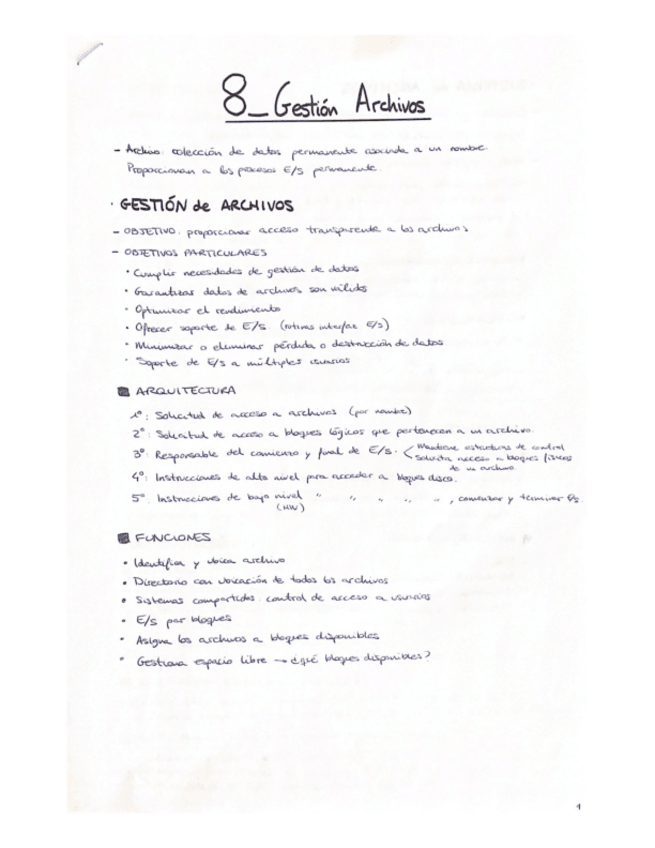 8_Gestión Archivos
- Archivo: colección de datos permanente asociada a un nombre.
Proporcionan a los procesos E/S permanente.
· GESTIÓN de ARCHIVOS
- OBJETIVO: proporcionar acceso transparente a los archivos
- OBJETIVOS PARTICULARES
• Cumplir necesidades de gestión de datos
• Garantizar datos de archivos son válidos
• Optimizar el rendimiento
• Ofrecer soporte de E/S. (rutinas interfaz E/S)
• Minimizar o eliminar pérdida o destrucción de datos
• Soporte de E/S a múltiples usuarios
ARQUITECTURA
1º: Solicitud de acceso a archivos (por nombre)
2º: Solicitud de acceso a bloques lógicos que pertenecen a un archivo.
3º: Responsable del comienzo y final de E/S. < Mantiene estructuras de control
Solicita acceso a bloques físicos
de un archivo.
4º: Instrucciones de alto nivel para acceder a bloques disco.
5º: Instrucciones de bajo nivel " " " " " , comenzar y terminar
(HW)
FUNCIONES
• Identifica y ubica archivo
• Directorio con ubicación de todos los archivos
• Sistemas compartidos: control de acceso a usuarios
• E/S por bloques
• Asigna los archivos a bloques disponibles
• Gestiona espacio libre → ¿qué bloques disponibles?
1